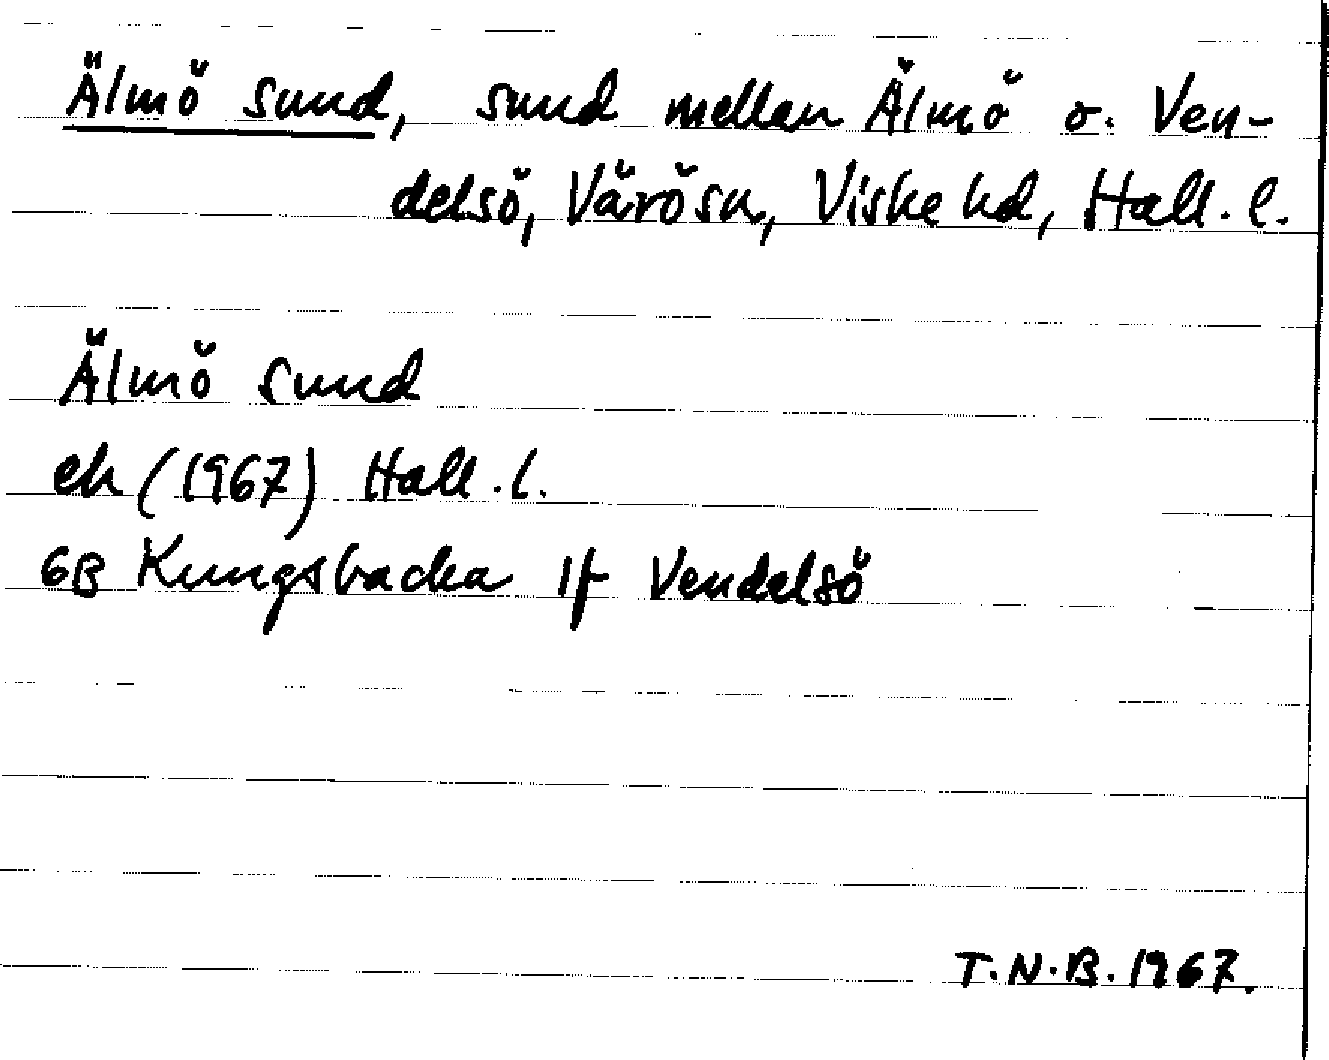 Älmö sund, sund mellan Älmö o. Ven-
delsö, Värö sn, Viske hd, Hall. l.
Älmö sund
ek (1967) Hall. l.
6B Kungsbacka 1f Vendelsö
T.N.B. 1967.